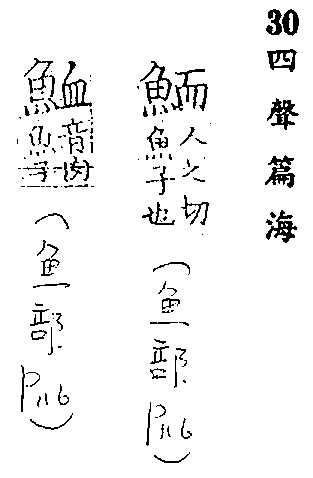 30四聲篇海
鮞人之切
魚子也
(魚部P.116)
䱊音肉
魚子
(魚部P.116)